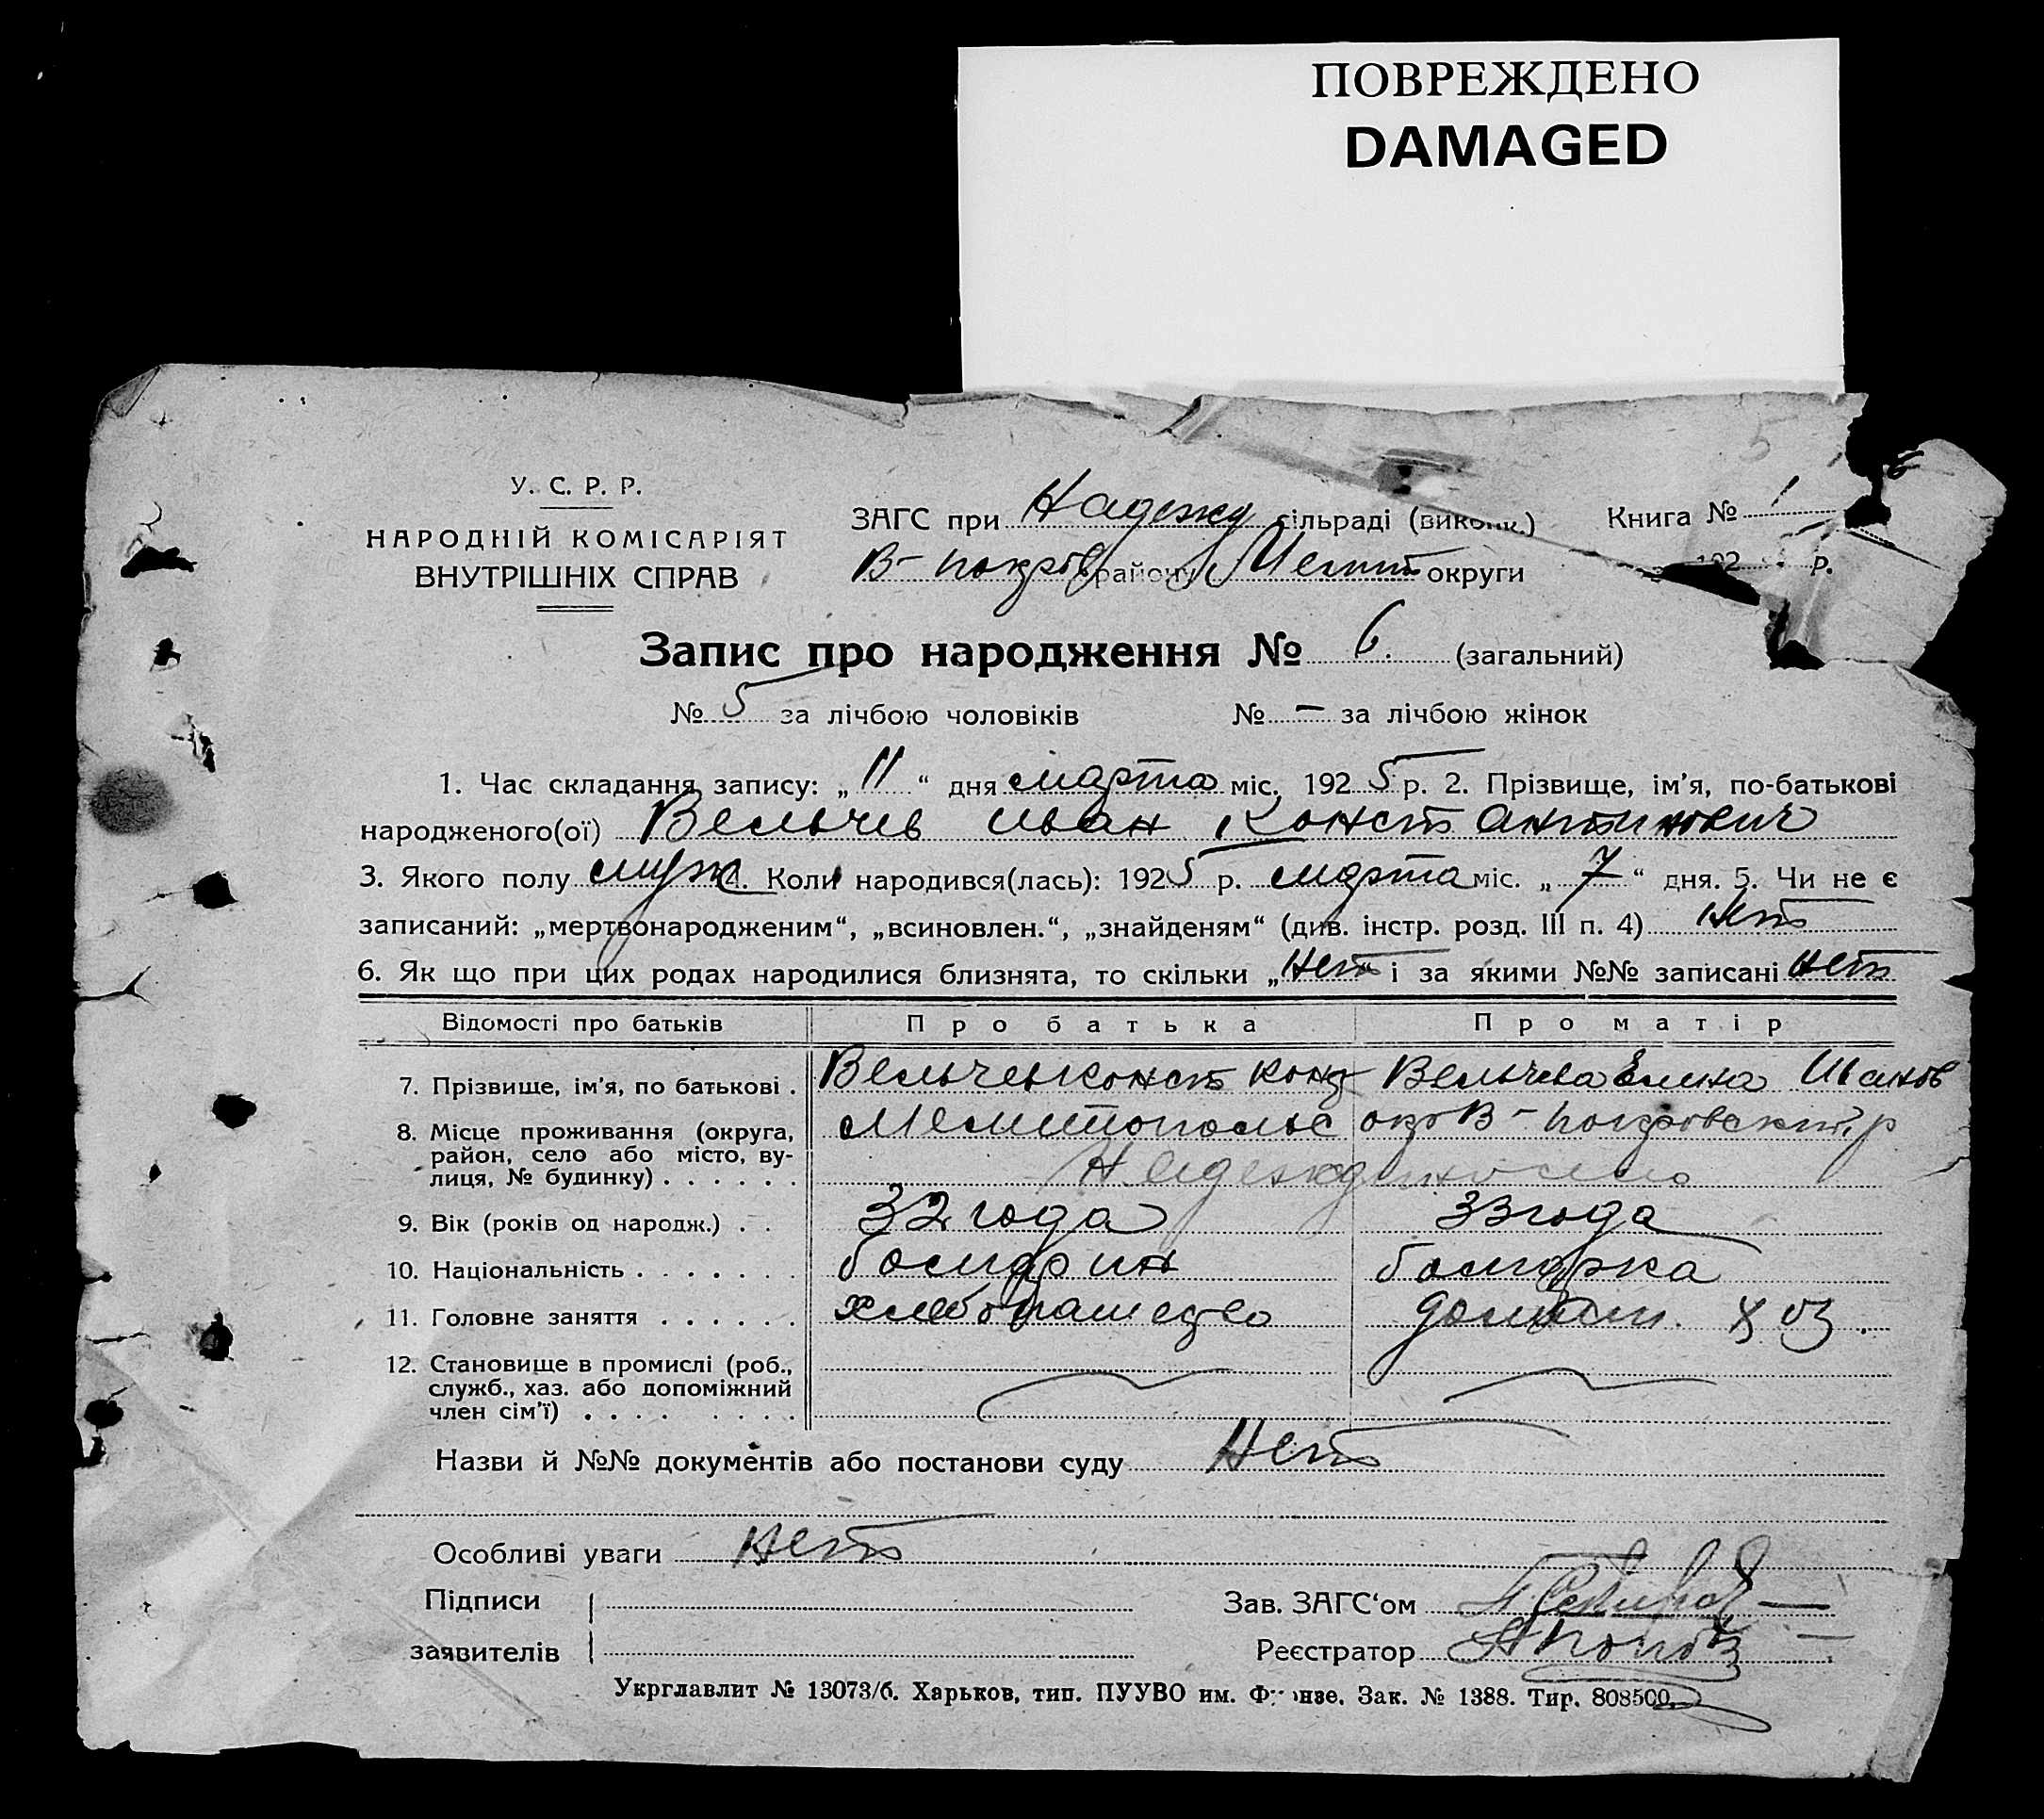 ПОВРЕЖДЕНО
DAMAGED
5
У. С. Р. Р.
НАРОДНІЙ КОМІСАРІЯТ
ВНУТРІШНІХ СПРАВ
ЗАГС при Надежд сільраді (викон.) Книга № 1
В-покров району Мелит округи 192 р.
Запис про народження № 6. (загальний)
№ 5 за лічбою чоловіків № — за лічбою жінок
1. Час складання запису: „11“ дня марта міс. 1925 р. 2. Прізвище, ім'я, по-батькові
народженого(ої) Вельчев Иван Константинович
3. Якого полу муж 4. Коли народився(лась): 1925 р. марта міс. „7“ дня. 5. Чи не є
записаний: „мертвонародженим“, „всиновлен.“, „знайденям“ (див. інстр. розд. III п. 4) Нет
6. Як що при цих родах народилися близнята, то скільки „Нет“ і за якими №№ записані Нет
Відомості про батьків Про батька Про матір
7. Прізвище, ім'я, по батькові . Вельчев Конст Вельчева Елена
8. Місце проживання (округа, район, село або місто, вулиця, № будинку) . . . . . . Мелитопольс окр В-покровский р
9. Вік (років од народж.) . . 32 года 33 года
10. Національність . . . . . . . болгарин болгарка
11. Головне заняття . . . . . . хлебопашество домаш. хоз.
12. Становище в промислі (роб.,
служб., хаз. або допоміжний
член сім'ї) . . . . . . . .
Назви й №№ документів або постанови суду Нет
Особливі уваги Нет
Підписи Зав. ЗАГС‘ом
заявителів Реєстратор
Укрглавлит № 13073/б. Харьков, тип. ПУУВО им. Фрунзе. Зак. № 1388. Тир. 808500.